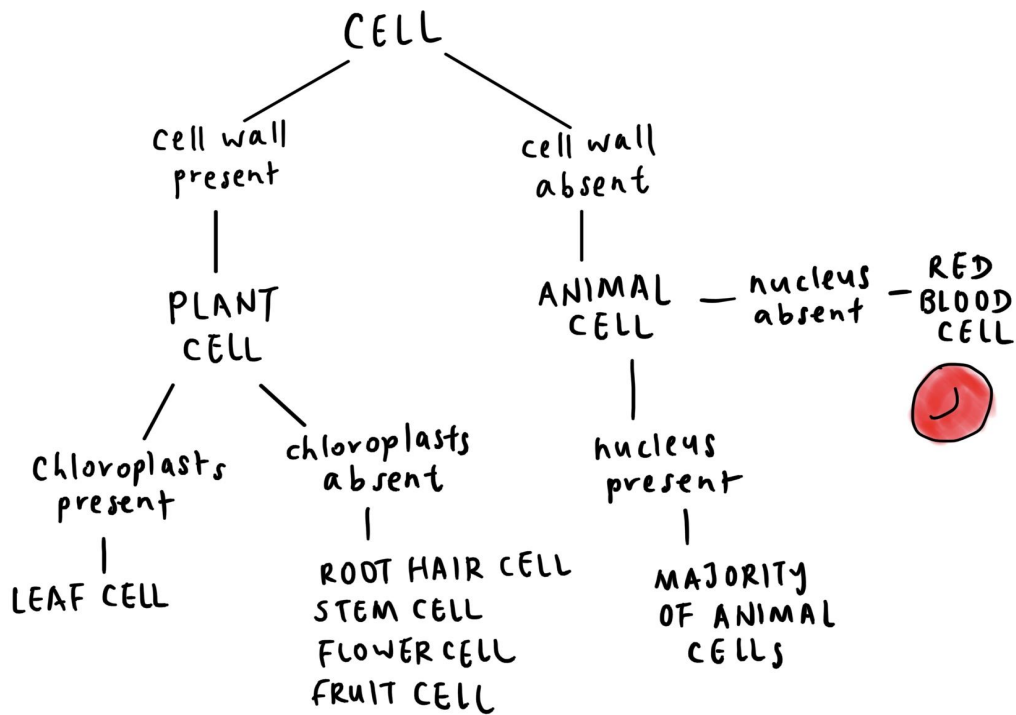 CELL
cell wall
present
cell wall
absent
PLANT
CELL
ANIMAL
CELL
nucleus
absent
RED
BLOOD
CELL
Chloroplasts
present
chloroplasts
absent
nucleus
present
LEAF CELL
ROOT HAIR CELL
STEM CELL
FLOWER CELL
FRUIT CELL
MAJORITY
OF ANIMAL
CELLS